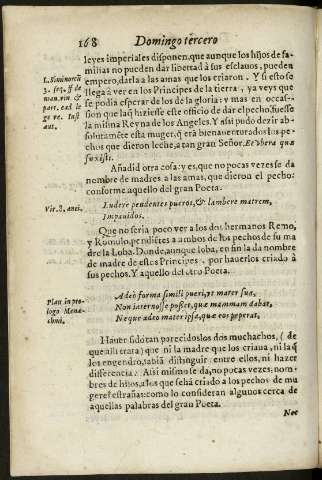 168 Domingo tercero
leyes imperiales disponen, que aunque los hijos de fa-
milias no pueden dar libertad à sus esclauos, pueden
empero, darla a las amas que los criaron. Y si esto se
llega à ver en los Principes de la tierra, ya veys que
se podia esperar de los de la gloria: y mas en occas-
sion que la hiziesse este officio de dar el pecho; fuesse
la misma Reyna de los Angeles. Y assi pudo dezir ab-
solutamẽte esta muger, q̃ erã bienauenturados los pe-
chos que dieron leche, a tan gran Señor. Et vbera quæ
suxisti.
L. Si minorcũ
3. ff. de
man. vin. &
part. ext. le
ge ve. Iust
aut.
Añadid otra cosa: y es, que no pocas vezes se da
nombre de madres a las amas, que dieron el pecho:
conforme aquello del gran Poeta.
Vir. 8. anei.
Ludere pendentes pueros, & lambere matrem,
Impauidos.
Que no seria poco ver a los dos hermanos Remo,
y Romulo, pendiẽtes a ambos de los pechos de su ma
dre la Loba. Donde aunque loba, en fin la da nombre
de madre de estos Principes, por hauerlos criado à
sus pechos. Y aquello del otro Poeta.
Plan in pro-
logo Menæ-
chmi.
Adeo forma simili pueri, vt mater sua,
Non internosse posset, quæ mammam dabat,
Neque adeo mater ipsa, quæ eos peperat,
Hauer sido tan parecidos los dos muchachos, (de
que alli trata) que ni la madre que los criaua, ni la q̃
los engendro, sabia distinguir entre ellos, ni hazer
differencia. Assi mismo se da, no pocas vezes, nom-
bres de hijos, a los que se hã criado a los pechos de mu
ger estraña: como lo consideran algunos cerca de
aquellas palabras del gran Poeta.
Nec